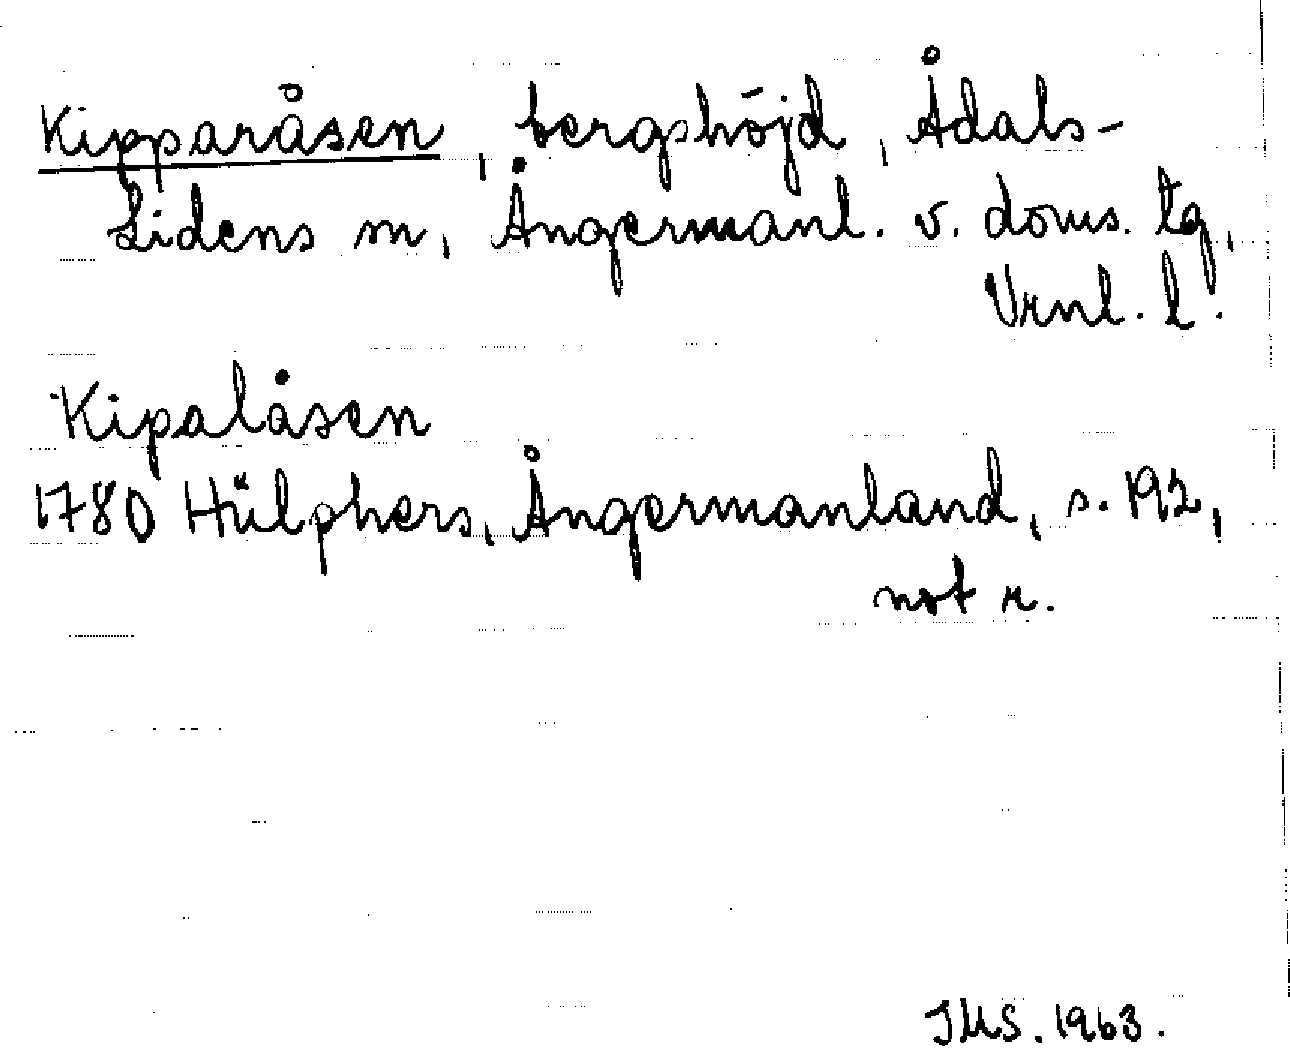 Kipparåsen, bergshöjd, Ådals-
Lidens sn, Ångermanl. v. doms. tg,
Vrnl. l.
Kipalåsen
1780 Hülphers, Ångermanland, s. 192,
not r.
JMS. 1963.